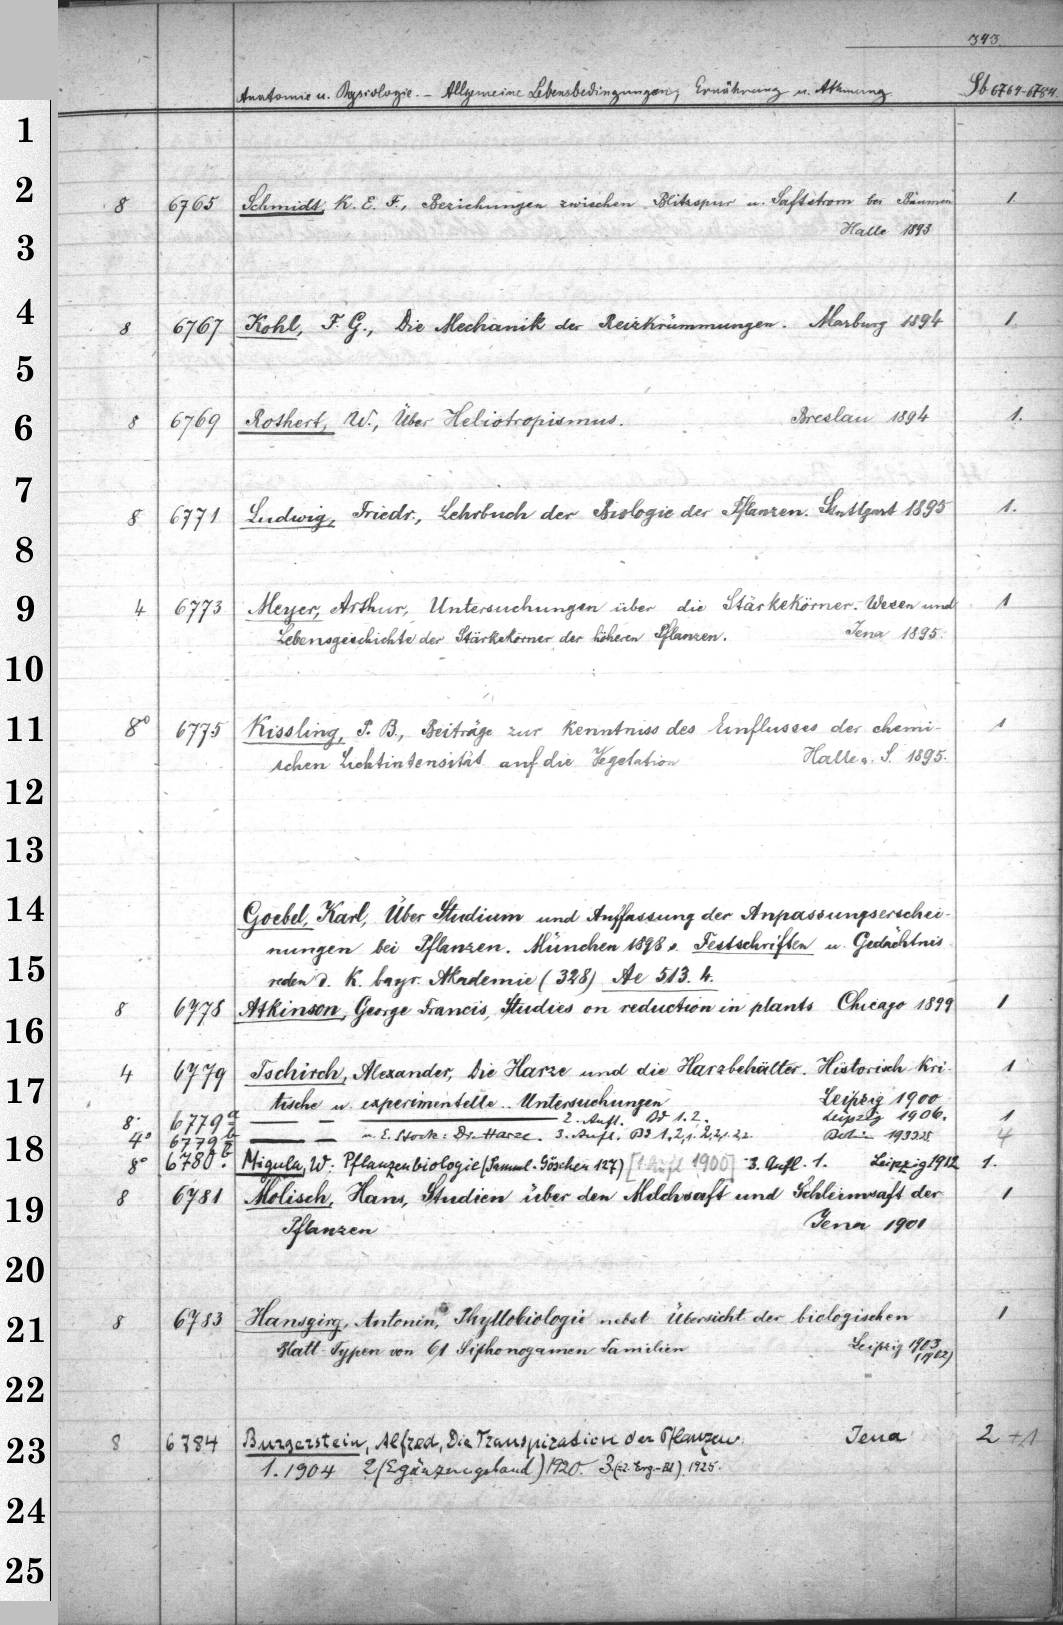 343.
Anatomie u. Physiologie. – Allgemeine Lebensbedingungen, Ernährung u. Atmung Sb 6764-6784.
1
2
8 6765 Schmidt, K. E. F., Beziehungen zwischen Blitzspur u. Saftstrom bei Bäumen 1
Halle 1893
3
4
8 6767 Kohl, F. G., Die Mechanik der Reizkrümmungen. Marburg 1894 1.
5
6
8 6769 Rothert, W., Über Heliotropismus. Breslau 1894 1.
7
8 6771 Ludwig, Friedr., Lehrbuch der Biologie der Pflanzen. Stuttgart 1895 1.
8
9
4 6773 Meyer, Arthur, Untersuchungen über die Stärkekörner. Wesen und 1
Lebensgeschichte der Stärkekörner der höheren Pflanzen. Jena 1895.
10
11
8° 6775 Kissling, P. B., Beiträge zur Kenntniss des Einflusses der chemi- 1
schen Lichtintensität auf die Vegetation Halle a. S. 1895.
12
13
14
Goebel, Karl, Über Studium und Auffassung der Anpassungserschei-
nungen bei Pflanzen. München 1898 s. Festschriften u. Gedächtnis
15
reden d. K. bayr. Akademie (328) Ae 513. 4.
8 6778 Atkinson, George Francis, Studies on reduction in plants Chicago 1899 1
16
4 6779 Tschirch, Alexander, Die Harze und die Harzbehälter. Historisch-kri- 1
17
tische u. experimentelle Untersuchungen Leipzig 1900
8° 6779 a — — — 2. Aufl. Bd 1. 2. Leipzig 1906. 1
18
4° 6779 b — — u. E. Stock: Die Harze. 3. Aufl. Bd 1. 2,1. 2,2,1. 2,2 4
8° 6780 b Migula, W: Pflanzenbiologie (Samml. Göschen 127) [1. Aufl 1900] 3. Aufl. 1. Leipzig 1912 1.
8 6781 Molisch, Hans, Studien über den Milchsaft und Schleimsaft der 1
19
Pflanzen Jena 1901
20
8 6783 Hansgirg, Antonin, Phyllobiologie nebst Übersicht der biologischen 1
21
Blatt-Typen von 61 Siphonogamen Familien Leipzig 1903
(1902)
22
8 6784 Burgerstein, Alfred, Die Transpiration der Pflanzen. Jena 2 + 1
23
1. 1904 2 (Ergänzungsband) 1920. 3 (=2. Erg-Bd) 1925.
24
25